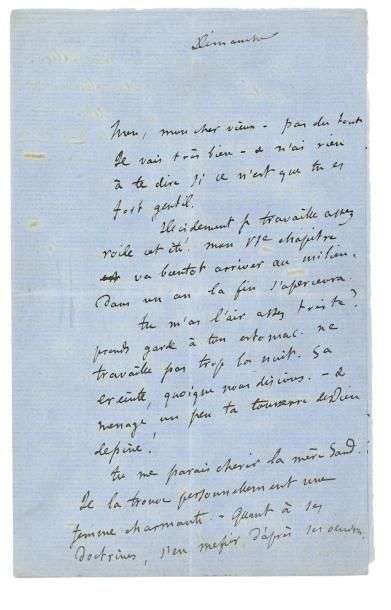 Dimanche
Non, mon cher vieux – pas du tout
Je vais très bien – & n'ai rien
à te dire si ce n'est que tu es
fort gentil.
Décidement je travaille assez
roide cet été. mon VIe chapitre
va bientot arriver au milieu.
Dans un an la fin s'apercevra.
tu m'as l'air assez triste ?
prends garde à ton estomac. ne
travaille pas trop la nuit. Ça
ereinte, quoique nous disions. – &
menage un peu ta
tu me parais cherir la mère Sand.
Je la trouve personnellement une
femme charmante. – Quant à ses
doctrines, s'en mefier, d'après ses œuvres